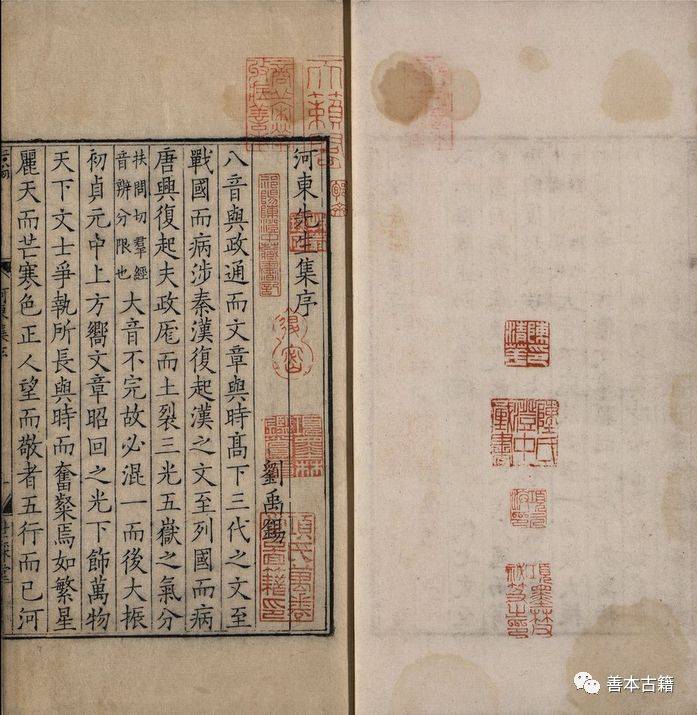 善本古籍
天籟閣
祁陽陳澄中藏書記
河東先生集序
劉禹錫
八音與政通而文章與時高下三代之文至
戰國而病涉秦漢復起漢之文至列國而病
唐興復起夫政厖而土裂三光五嶽之氣分
扶問切羣經
音辨分限也
大音不完故必混一而後大振
初貞元中上方嚮文章昭回之光下飾萬物
天下文士爭執所長與時而奮粲焉如繁星
麗天而芒寒色正人望而敬者五行而已河